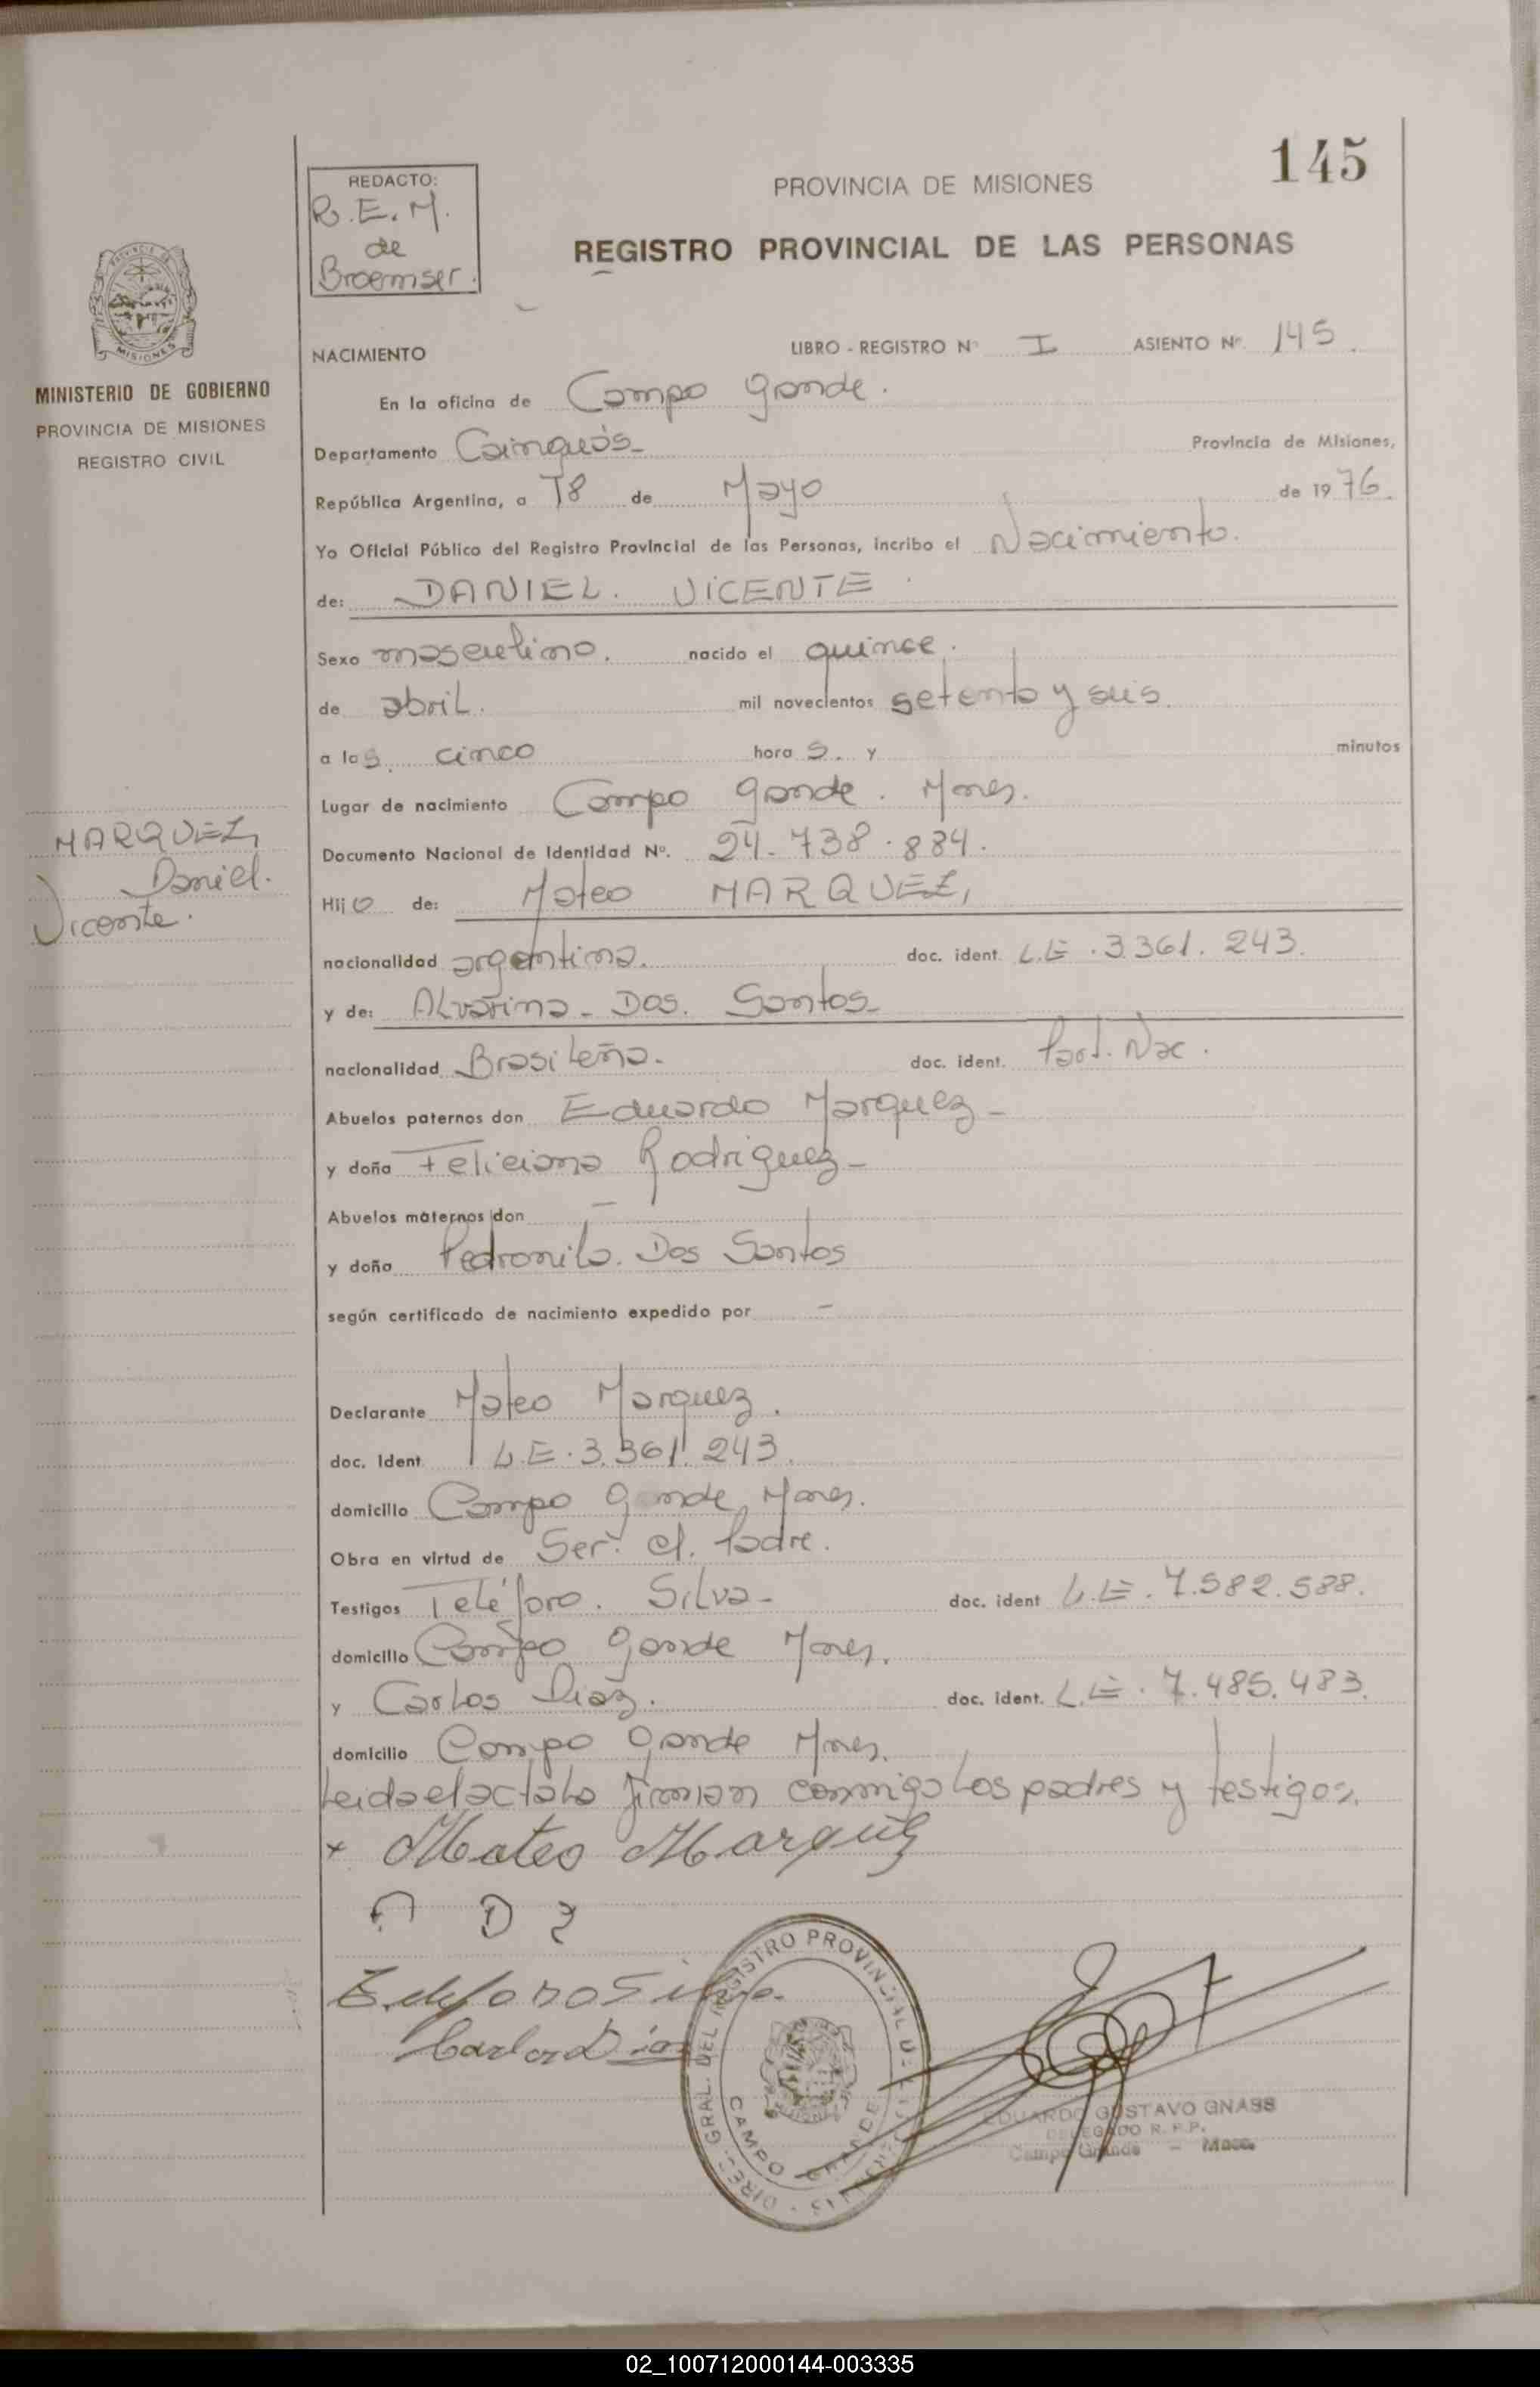 145
REDACTO:
R.E.M.
de
Broemser.
PROVINCIA DE MISIONES
REGISTRO PROVINCIAL DE LAS PERSONAS
MINISTERIO DE GOBIERNO
PROVINCIA DE MISIONES
REGISTRO CIVIL
NACIMIENTO LIBRO - REGISTRO Nº I ASIENTO Nº 145.
En la oficina de Campo Grande.
Departamento Cainguás- Provincia de Misiones,
República Argentina, a 18 de Mayo de 1976.
Yo Oficial Público del Registro Provincial de las Personas, incribo el Nacimiento.
de: DANIEL. VICENTE.
Sexo masculino. nacido el quince.
de abril. mil novecientos setenta y seis.
a las. cinco hora s. y minutos
Lugar de nacimiento Campo Grande. Mnes.
Documento Nacional de Identidad Nº. 24.738.884.
MARQUEZ,
Daniel.
Vicente.
Hijo de: Mateo MARQUEZ,
nacionalidad argentina. doc. ident. L.E.3.361.243.
y de: Alvarina- Dos. Santos-
nacionalidad Brasileña. doc. ident. Part. Nac.
Abuelos paternos don Eduardo Marquez-
y doña Feliciana Rodriguez-
Abuelos maternos don -
y doña Pedronila. Dos Santos
según certificado de nacimiento expedido por -
Declarante Mateo Marquez.
doc. Ident. L.E.3.361.243.
domicilio Campo Grande, Mnes.
Obra en virtud de Ser. el. Padre.
Testigos Teléforo. Silva- doc. ident L.E.7.582.588.
domicilio Campo Grande Mnes.
y Carlos Diaz. doc. ident. L.E.7.485.483.
domicilio Campo Grande Mnes.
Leida el acta la firman conmigo los padres y testigos.
x Mateo Marquez
A D
Teleforo Silva.
Carlos Diaz
DIREC. GRAL. DEL REGISTRO PROVINCIAL DE LAS PERSONAS
CAMPO GRANDE
MISIONES
EDUARDO GUSTAVO GNASS
DELEGADO R. P. P.
Campo Grande - Mnes.
02_100712000144-003335